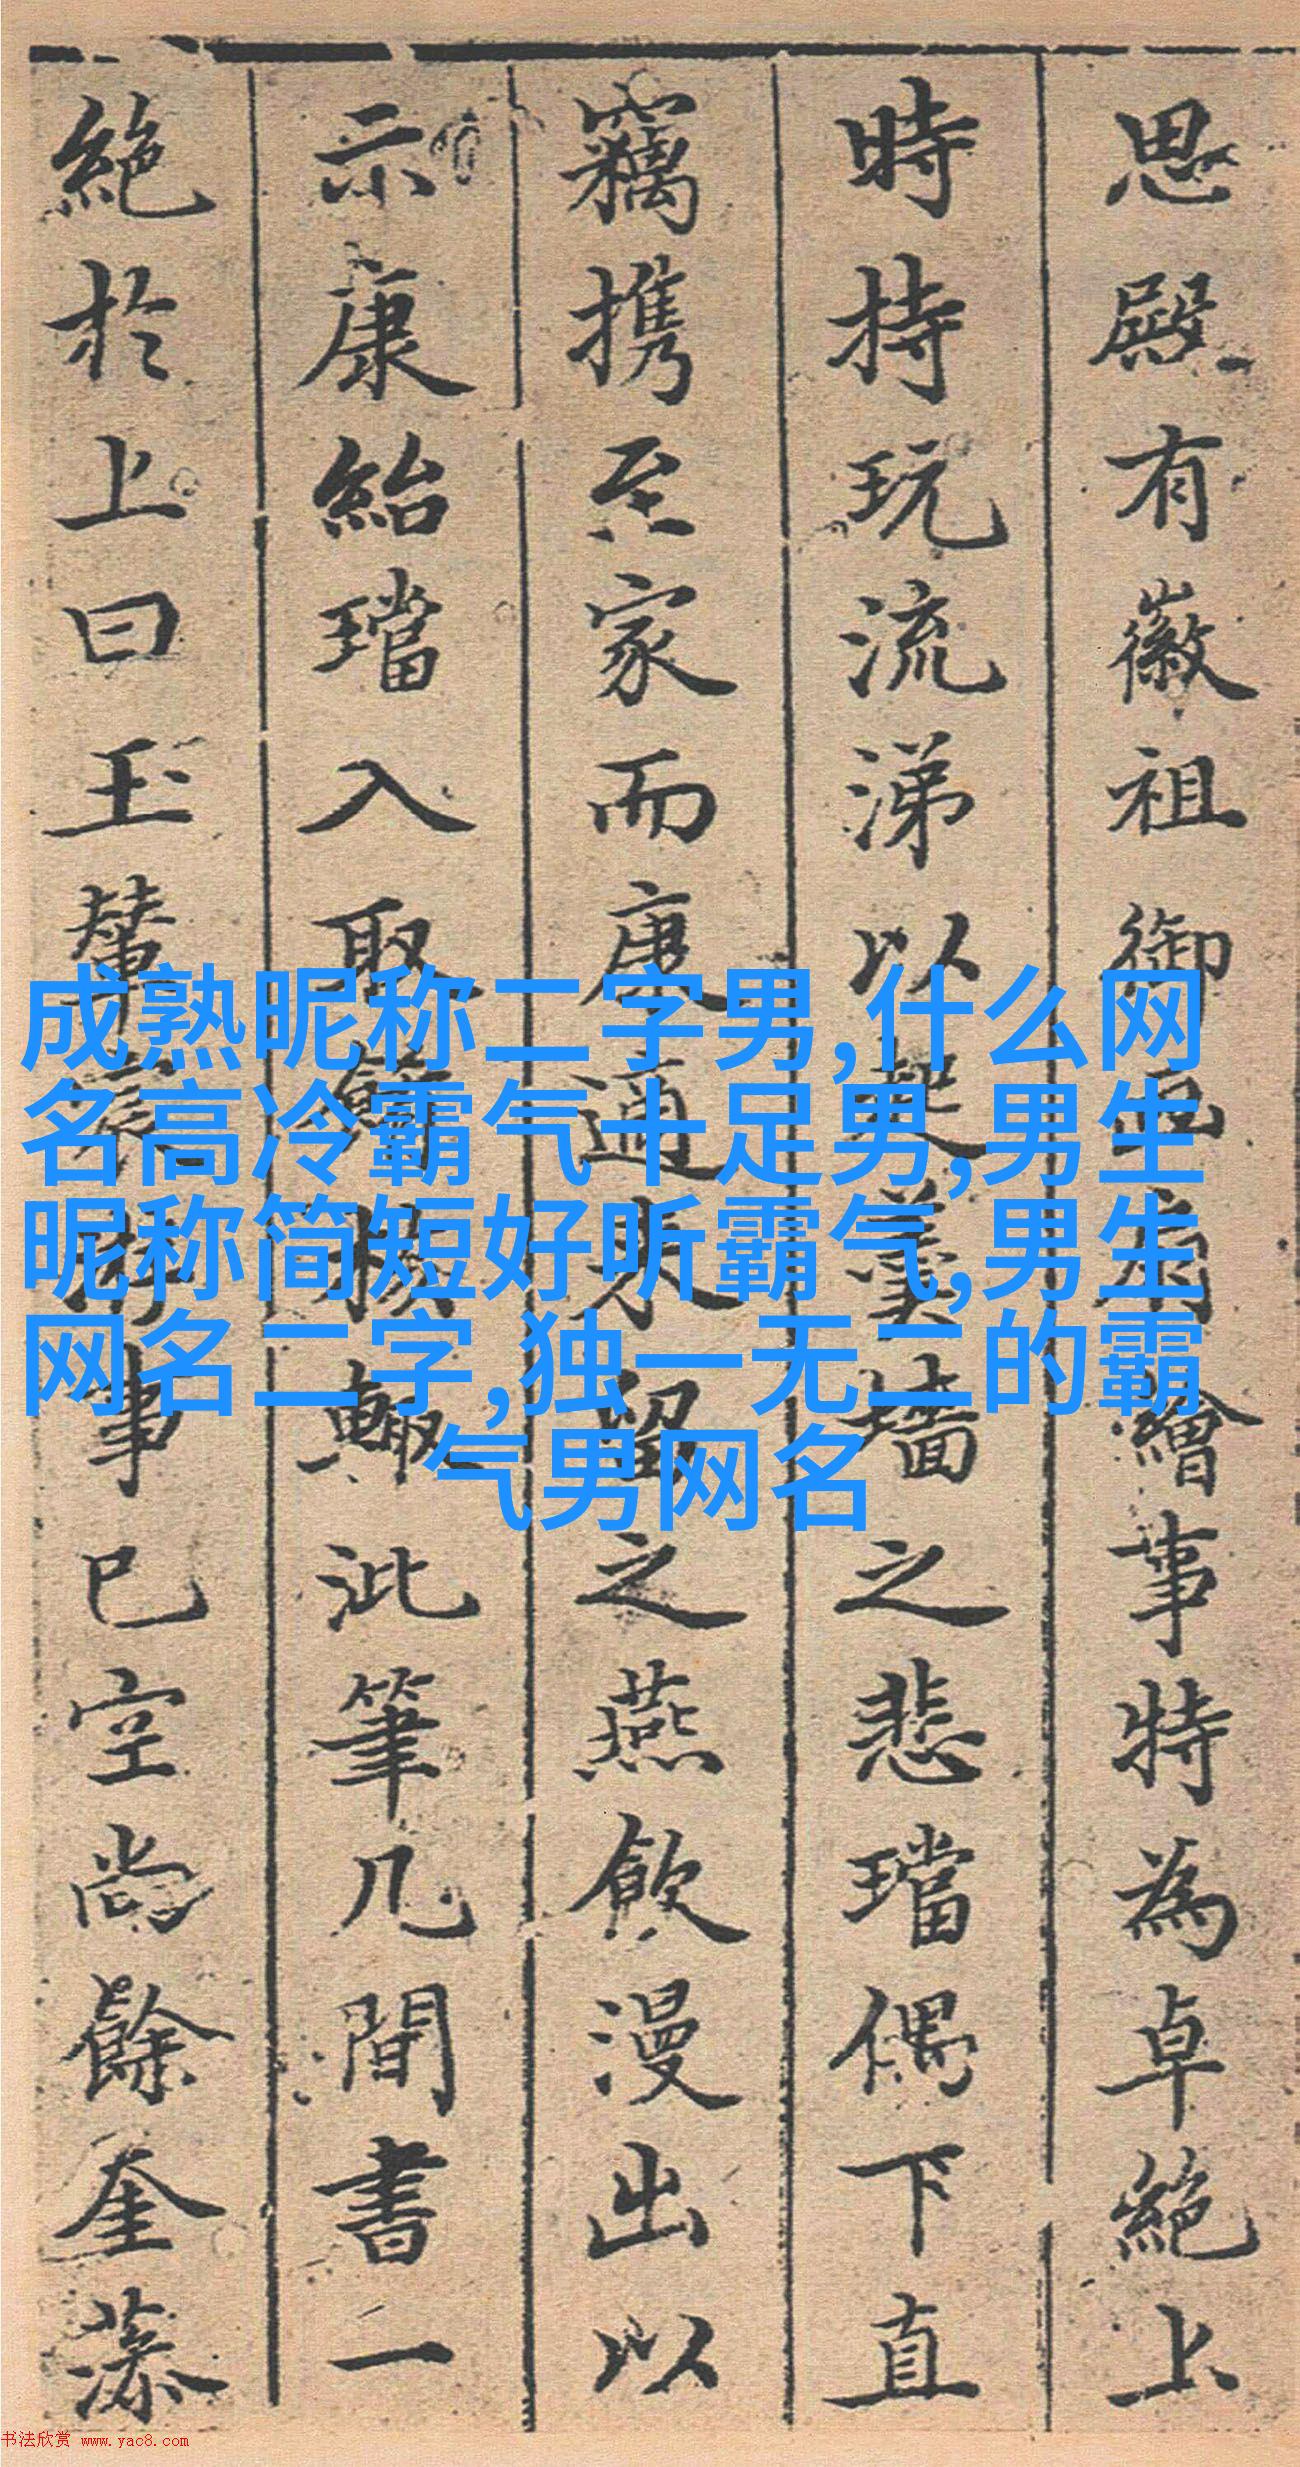 思殿有徽祖御画扇繪事特為卓絕上
時持玩流涕以起羹墻之悲璫偶下直
竊携至家而康適来留之燕飲漫出以
示康紿璫入取餚核輙泚筆几間書一
絕於上曰玉輦宸游事已空尚餘奎藻
成熟昵称二字男,什么网
名高冷霸气十足男,男生
昵称简短好听霸气,男生
网名二字,独一无二的霸
气男网名
书法欣赏 www.yac8.com